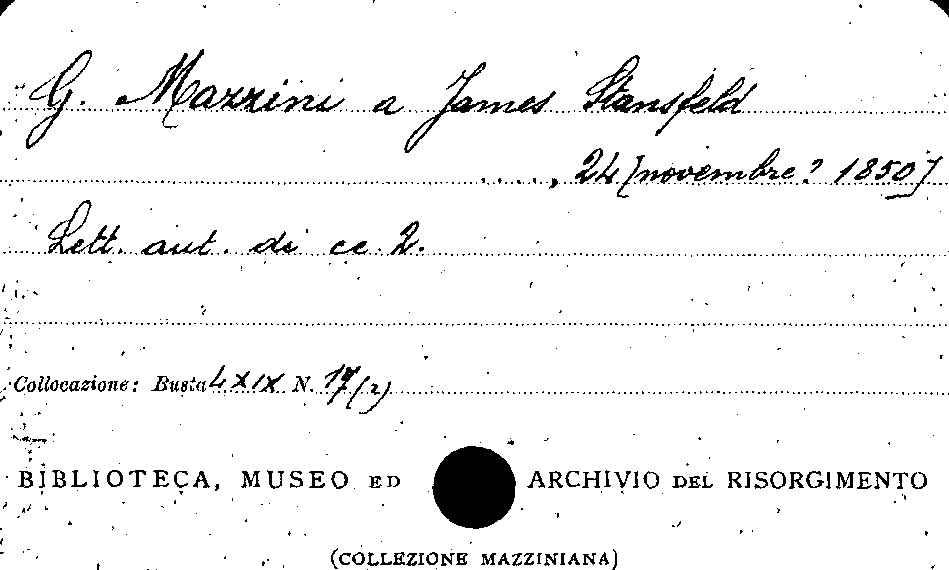 G. Mazzini a James Stansfeld
...., 24 [novembre? 1850]
Lett. aut. di cc. 2.
Collocazione: Busta 4 XIX N. 17(2)
BIBLIOTECA, MUSEO ED ARCHIVIO DEL RISORGIMENTO
(COLLEZIONE MAZZINIANA)